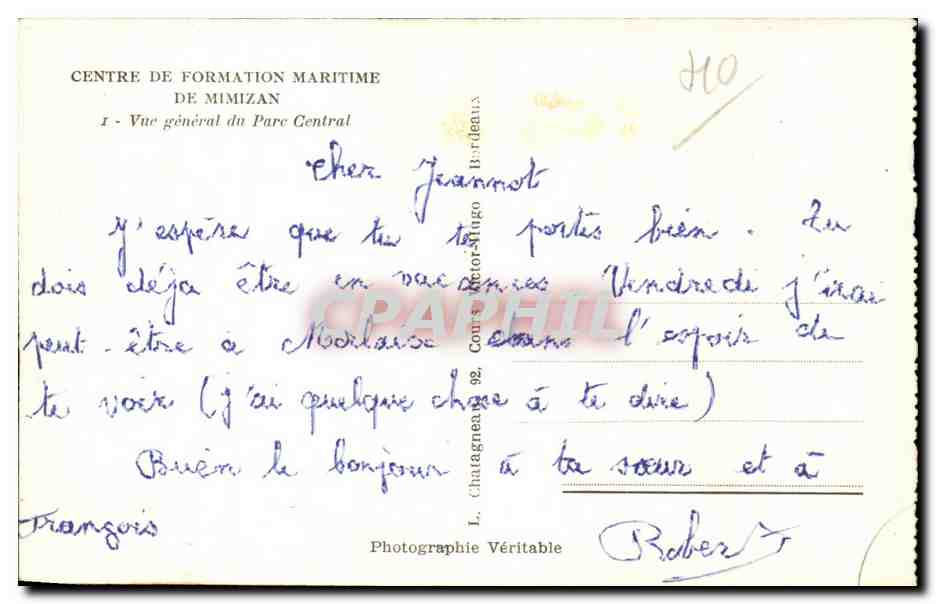 CENTRE DE FORMATION MARITIME
DE MIMIZAN
1 - Vue général du Parc Central
410
Cher Jeannot
J'espère que tu te portes bien. Tu
dois déja être en vacances Vendredi j'irai
peut-être à Morlaix dans l'espoir de
te voir (j'ai quelque chose à te dire)
Buén le bonjour à ta sœur et à
François
Robert
L. Chatagneau, 92, Cours Victor-Hugo Bordeaux
Photographie Véritable
CPAPHIL